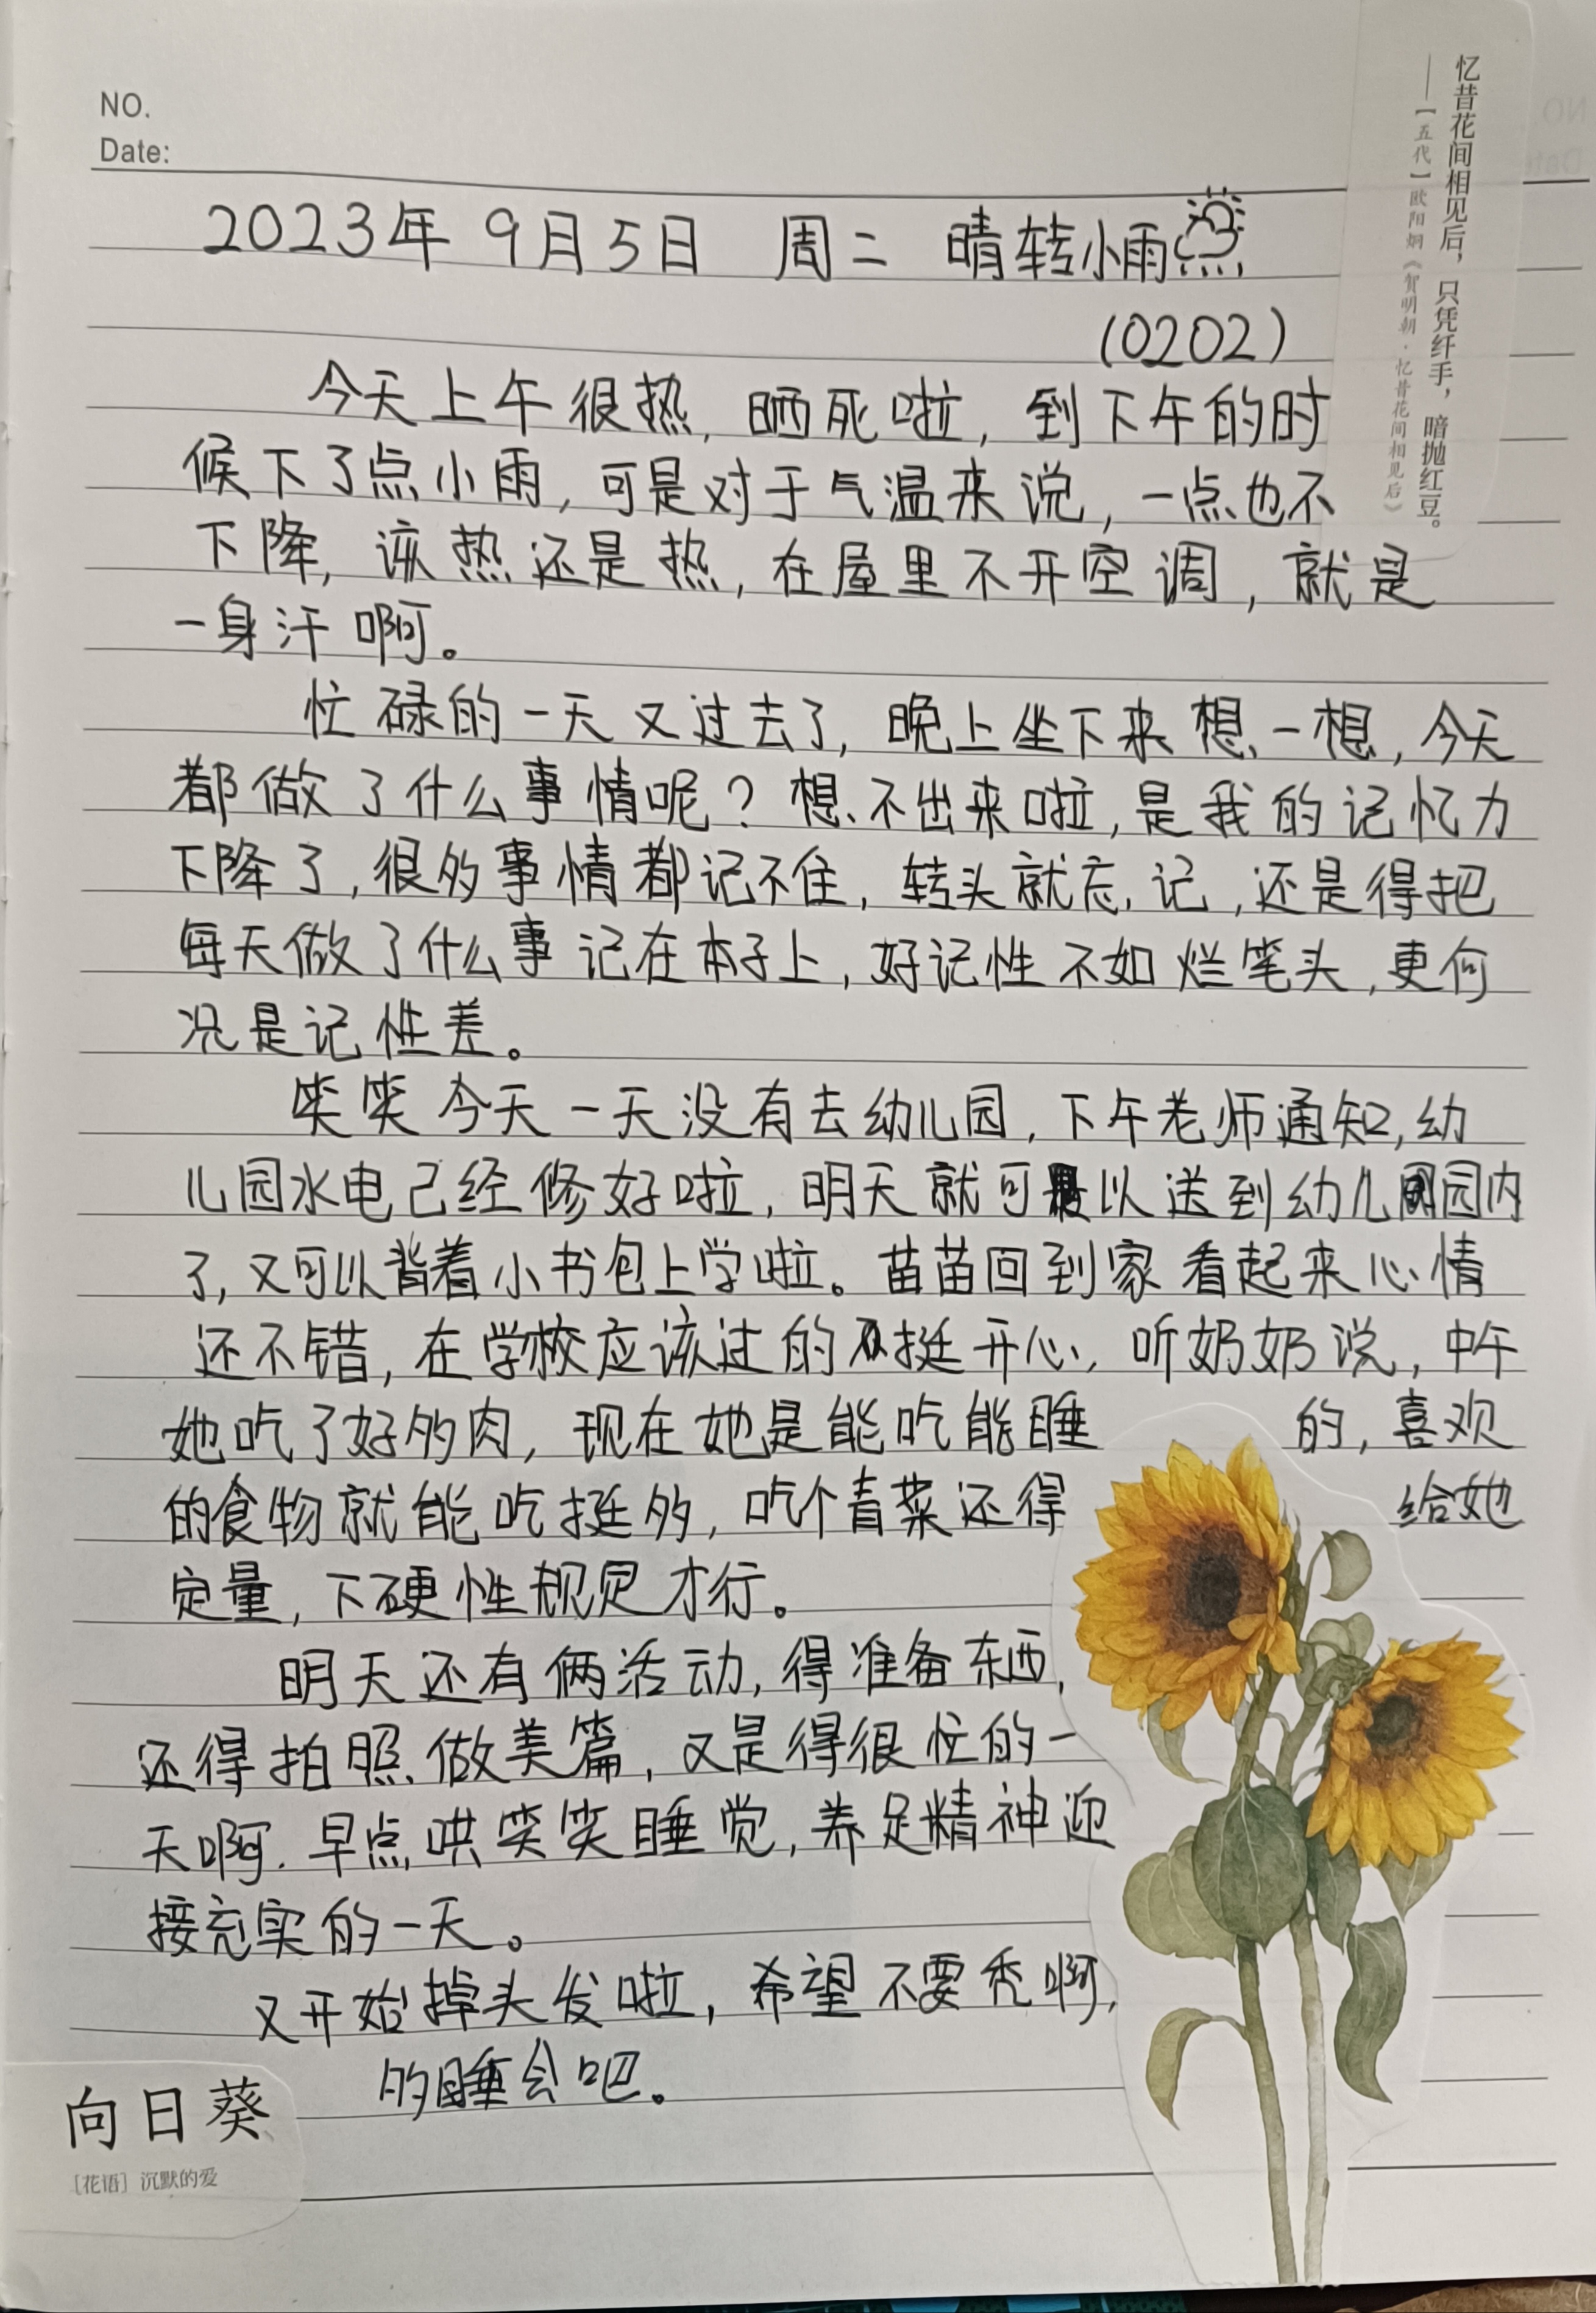 NO.
Date:
忆昔花间相见后，只凭纤手，暗抛红豆。
——【五代】欧阳炯《贺明朝·忆昔花间相见后》
2023年9月5日 周二 晴转小雨
(0202)
今天上午很热，晒死啦，到下午的时
候下了点小雨，可是对于气温来说，一点也不
下降，该热还是热，在屋里不开空调，就是
一身汗啊。
忙碌的一天又过去了，晚上坐下来想一想，今天
都做了什么事情呢？想不出来啦，是我的记忆力
下降了，很多事情都记不住，转头就忘记，还是得把
每天做了什么事记在本子上，好记性不如烂笔头，更何
况是记性差。
笑笑今天一天没有去幼儿园，下午老师通知，幼
儿园水电已经修好啦，明天就可以送到幼儿园内
了，又可以背着小书包上学啦。苗苗回到家看起来心情
还不错，在学校应该过的挺开心，听奶奶说，中午
她吃了好多肉，现在她是能吃能睡的，喜欢
的食物就能吃挺多，吃个青菜还得给她
定量，下硬性规定才行。
明天还有俩活动，得准备东西，
还得拍照做美篇，又是得很忙的一
天啊。早点哄笑笑睡觉，养足精神迎
接充实的一天。
又开始掉头发啦，希望不要秃啊，
的睡会吧。
向日葵
［花语］沉默的爱